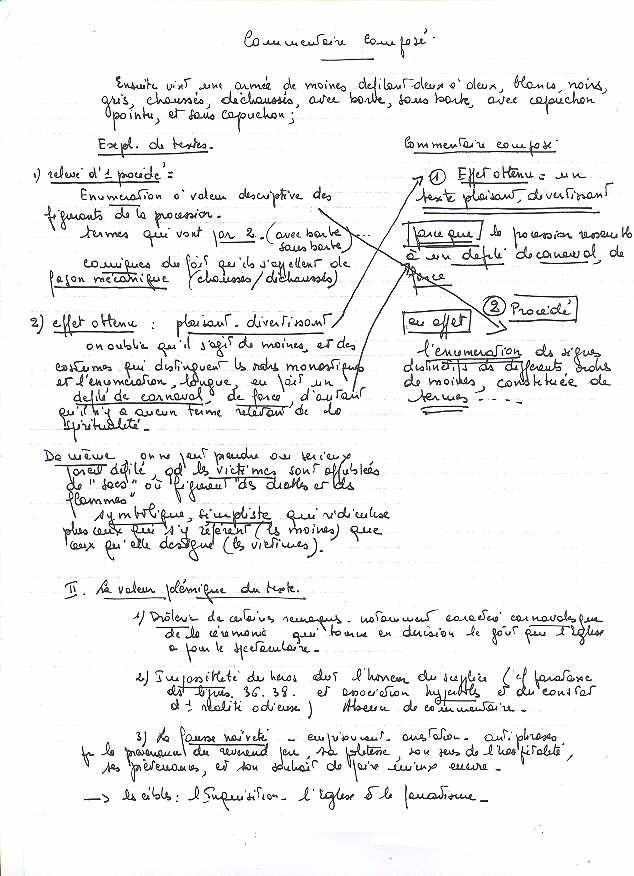 Commentaire composé.
Ensuite vint une armée de moines défilant deux à deux, blancs, noirs,
gris, chaussés, déchaussés, avec barbe, sans barbe, avec capuchon
pointu, et sans capuchon;
Expl. de textes.
1) relevé d'1 procédé :
Enumération à valeur descriptive des
figurants de la procession.
termes qui vont par 2. (avec barbe
sans barbe)
comiques du fait qu'ils s'appellent de
façon mécanique (chaussés / déchaussés)
2) effet obtenu : plaisant - divertissant
on oublie qu'il s'agit de moines, et des
costumes qui distinguent les ordres monastiques
et l'énumération, longue, en fait un
défilé de carnaval, de farce, d'autant
qu'il n'y a aucun terme relevant de la
spiritualité.
Commentaire composé
① Effet obtenu = un
texte plaisant, divertissant
parce que la procession ressemble
à un défilé de carnaval, de
farce
② Procédé
en effet
l'énumération des signes
distinctifs des différents ordres
de moines, constituée de
termes - - - - -
De même, on ne peut prendre au sérieux
pareil défilé, qd les victimes sont affublées
de "sacs" où figurent "des diables et des
flammes"
symbolique, simpliste qui ridiculise
plus ceux qui s'y réfèrent (les moines) que
ceux qu'elle désigne (les victimes).
II. La valeur polémique du texte.
1) Drôlerie de certaines remarques. notamment caractère carnavalesque
de la cérémonie qui tourne en dérision le goût que l'Eglise
a pour le spectaculaire.
2) Impossibilité du héros dvt l'horreur du supplice (cf
des lignes. 36. 38. et association hyperboles et du constat
d'1 réalité odieuse) Absence de commentaire.
3) La fausse naïveté - antiphrases
pr le révérend père, sa politesse, son sens de l'hospitalité,
ses prévenances, et son souhait de faire mieux encore.
—> les cibles : l'Inquisition - l'Eglise & le fanatisme -